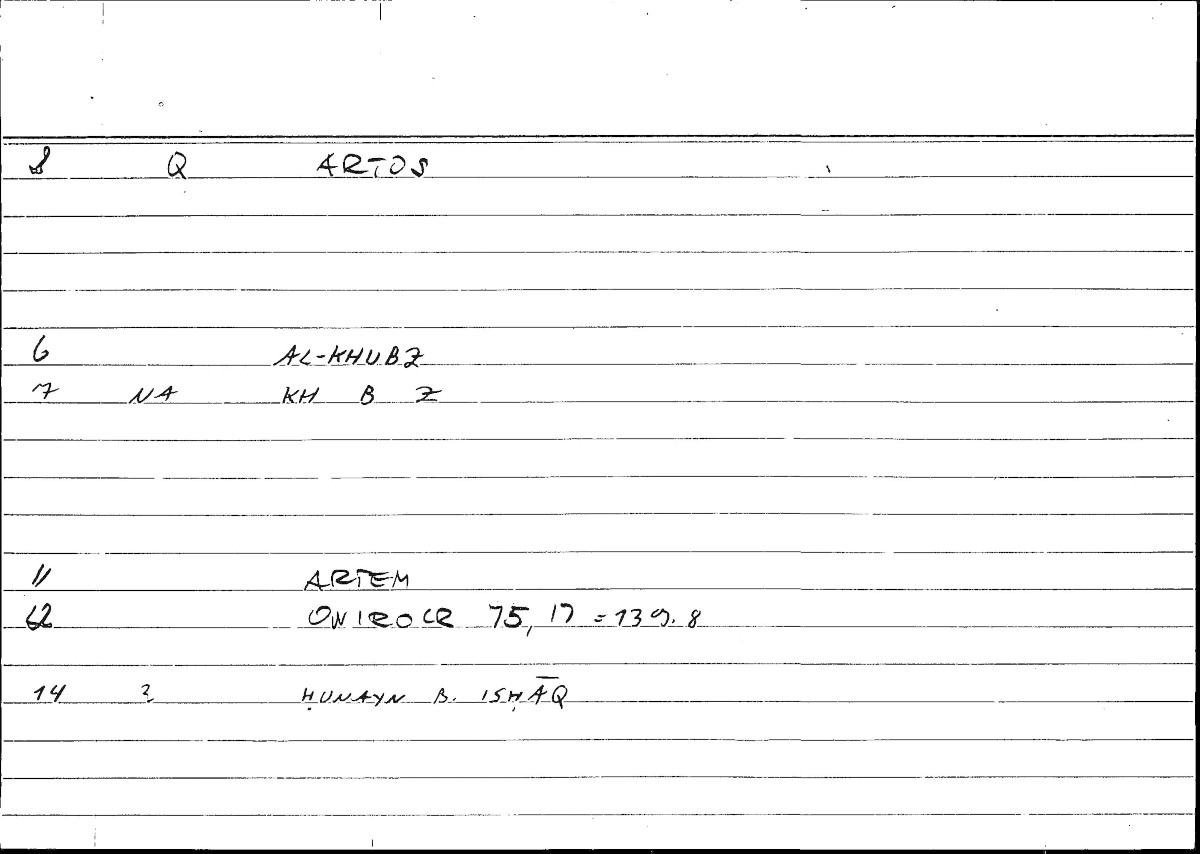 8 Q ARTOS
6 AL-KHUBZ
7 NA KH B Z
11 ARTEM
12 ONIROCR 75, 17 = 139. 8
14 2 ḤUNAYN B. ISḤĀQ